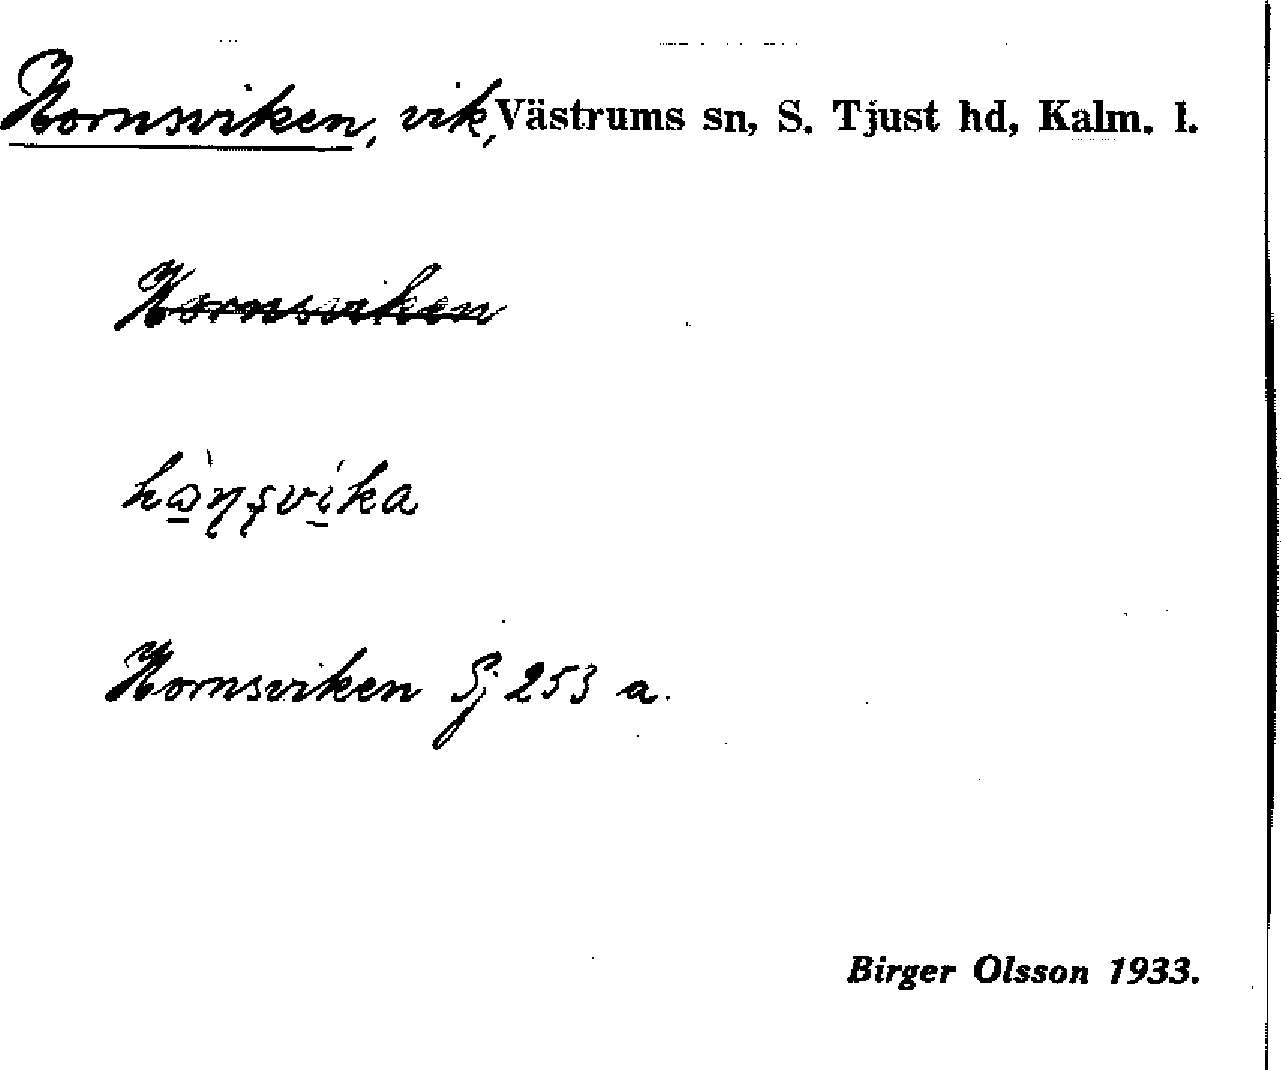 Hornsviken, vik, Västrums sn, S. Tjust hd, Kalm. l.
Hornsviken
Hornsviken Sj 253 a.
Birger Olsson 1933.